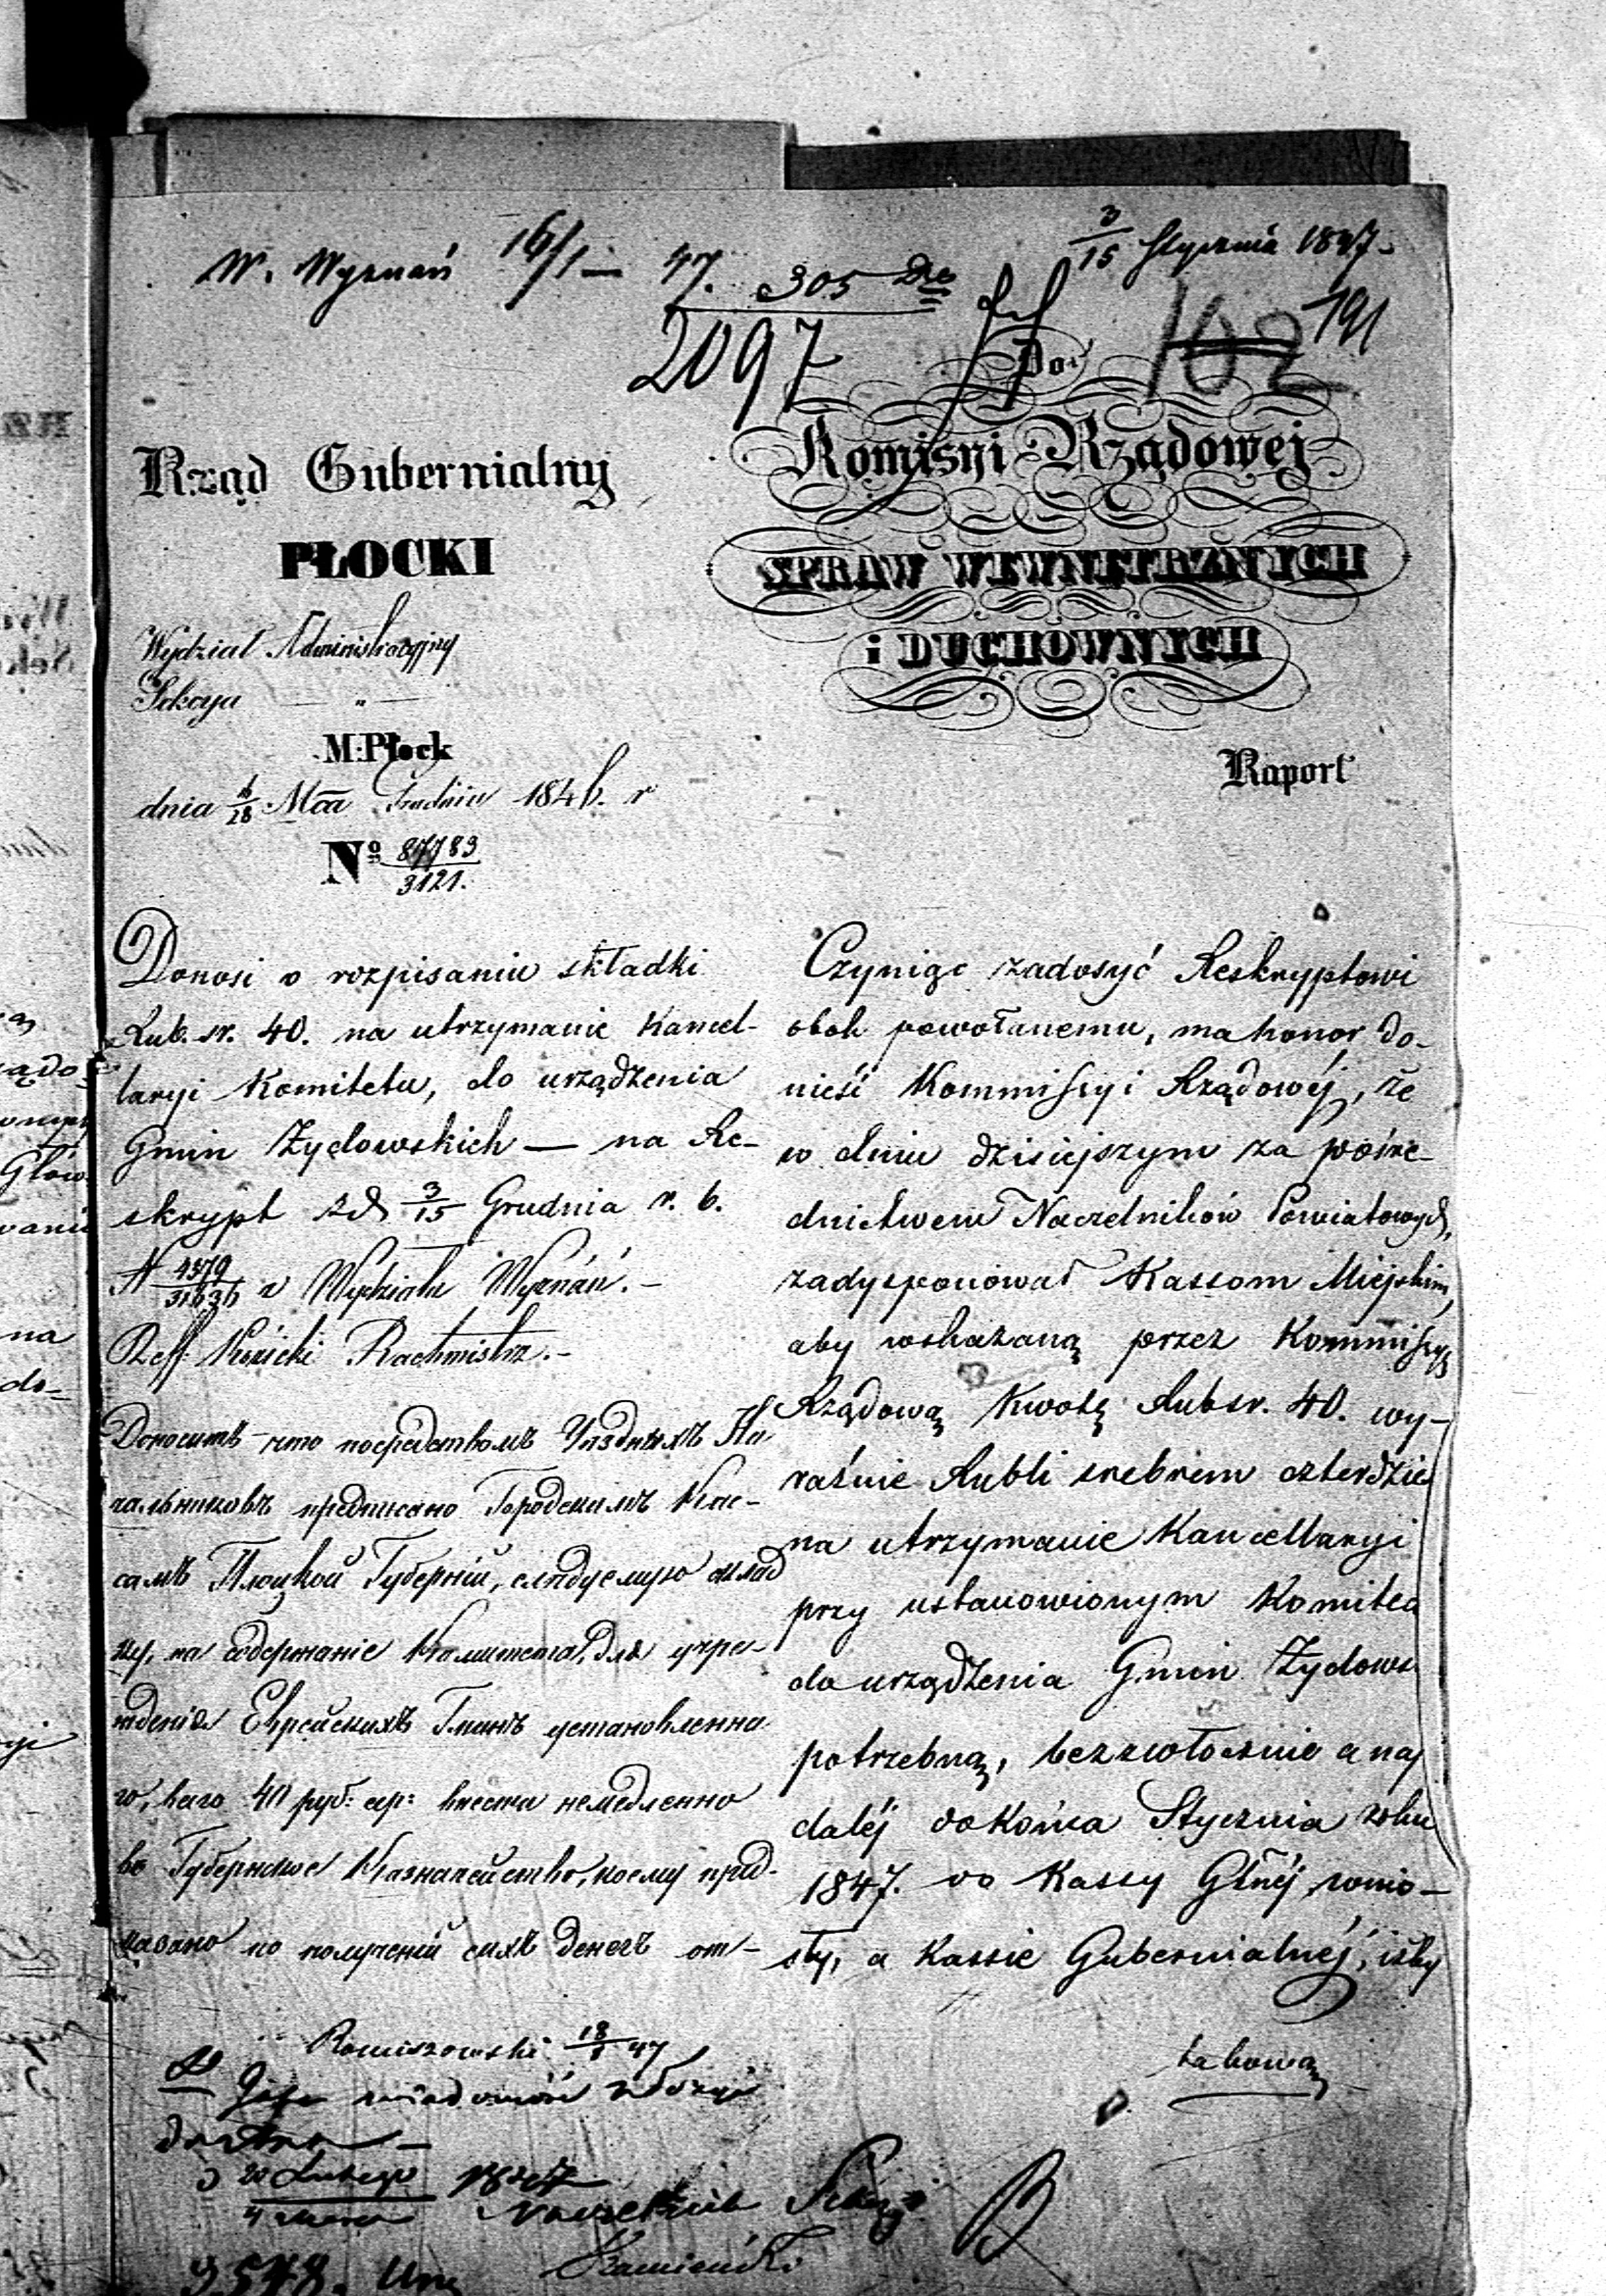 W. Wyznań 16/1 — 47. 305
3/15 Stycznia 1847.
2097
102 191
Do
Komisyi Rządowej
SPRAW WEWNĘTRZNYCH
i DUCHOWNYCH
Raport
Rząd Gubernialny
PŁOCKI
Wydział Administracyjny
Sekcya — " —
M. Płock
dnia 16/28 Mca Grudnia 1846. r
Nº 87783/3121.
Donosi o rozpisaniu składki
Rub. sr. 40. na utrzymanie Kancel-
laryi Komitetu, do urządzenia
Gmin Żydowskich — na Re-
skrypt z d. 3/15 Grudnia r. b.
N 4379/31636 z Wydziału Wyznań. –
Reff. Rachmistrz. –
Доноситъ что посредствомъ Уѣздныхъ На
чальниковъ предписано Городскимъ Кас-
самъ Плоцкой Губерніи, слѣдуемую склад
ку, на содержаніе Комитета, для учре-
жденія Еврейскихъ Гминъ установленна
го, всего 40 руб: сер: внести немедленно
въ Губернское Казначейство, коему пред-
казано по полученіи сихъ денегъ от-
Czyniąc zadosyć Reskryptowi
obok powołanemu, ma honor do-
nieść Kommissyi Rządowéj, że
w dniu dzisiejszym za pośre-
dnictwem Naczelników Powiatowych,
zadysponował Kassom Miejskim,
aby wskazaną przez Kommissyę
Rządową Kwotę Rub sr. 40. wy-
raźnie Rubli srebrem czterdzieś
na utrzymanie Kancellaryi
przy ustanowionym Komitec
do urządzenia Gmin Żydows
potrzebną, bezzwłocznie a naj
daléj do Końca Stycznia roku
1847. do Kassy Głnéj, wnio-
sły, a Kassie Gubernialnéj, iżby
takową
Romiszowski 18/1 47
wiadomość
20 Lutego 1847
4 Marca
Naczelnik Sekcyi
Kamieński